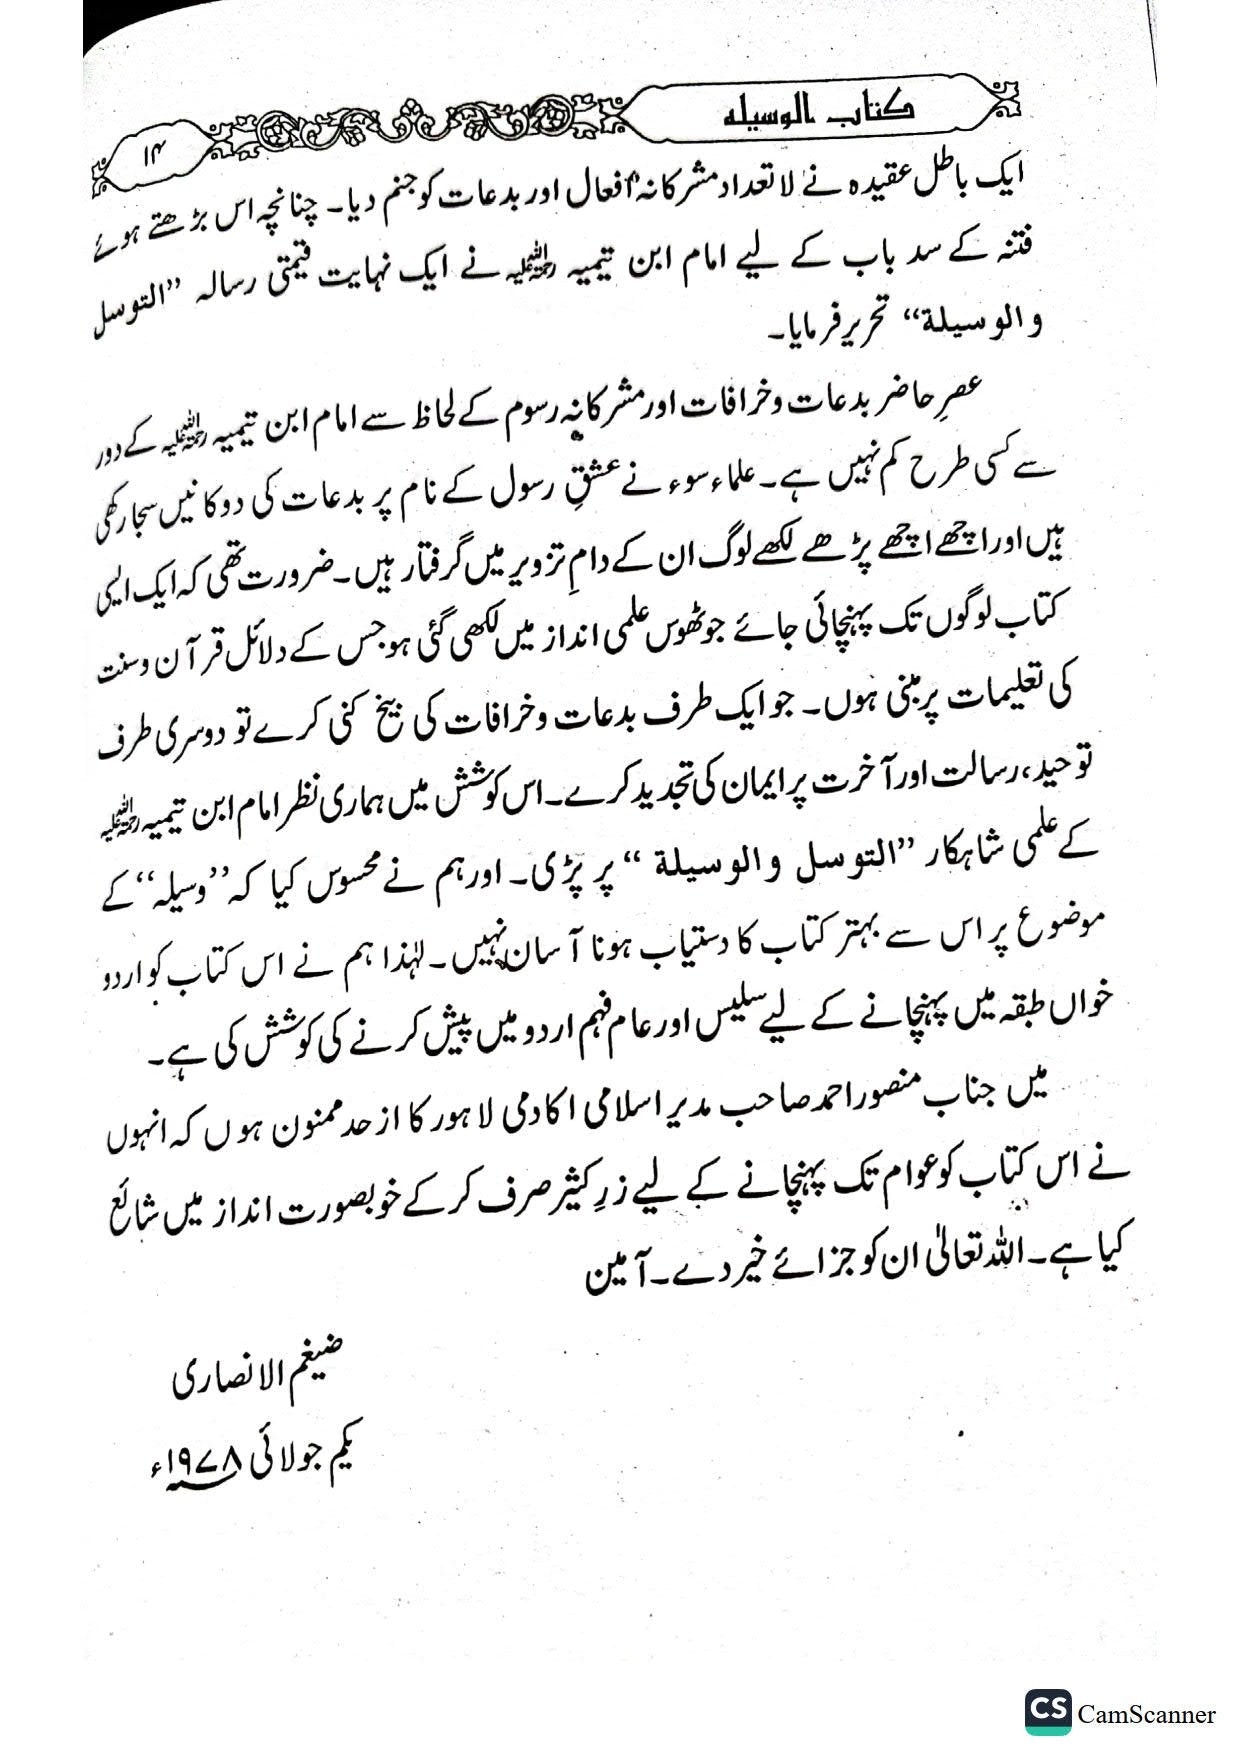 کتاب الوسیلہ
۱۴
ایک باطل عقیدہ نے لا تعداد مشرکانہ افعال اور بدعات کو جنم دیا۔ چنانچہ اس بڑھتے ہوئے
فتنہ کے سد باب کے لیے امام ابن تیمیہ رحمۃ اللہ علیہ نے ایک نہایت قیمتی رسالہ ’’التوسل
والوسیلة‘‘ تحریر فرمایا۔
عصرِ حاضر بدعات و خرافات اور مشرکانہ رسوم کے لحاظ سے امام ابن تیمیہ رحمۃ اللہ علیہ کے دور
سے کسی طرح کم نہیں ہے۔ علماء سوء نے عشقِ رسول کے نام پر بدعات کی دوکانیں سجا رکھی
ہیں اور اچھے اچھے پڑھے لکھے لوگ ان کے دامِ تزویر میں گرفتار ہیں۔ ضرورت تھی کہ ایک ایسی
کتاب لوگوں تک پہنچائی جائے جو ٹھوس علمی انداز میں لکھی گئی ہو جس کے دلائل قرآن و سنت
کی تعلیمات پر مبنی ہوں۔ جو ایک طرف بدعات و خرافات کی بیخ کنی کرے تو دوسری طرف
توحید، رسالت اور آخرت پر ایمان کی تجدید کرے۔ اس کوشش میں ہماری نظر امام ابن تیمیہ رحمۃ اللہ علیہ
کے علمی شاہکار ’’التوسل والوسیلة‘‘ پر پڑی۔ اور ہم نے محسوس کیا کہ ’’وسیلہ‘‘ کے
موضوع پر اس سے بہتر کتاب کا دستیاب ہونا آسان نہیں۔ لہٰذا ہم نے اس کتاب کو اردو
خواں طبقہ میں پہنچانے کے لیے سلیس اور عام فہم اردو میں پیش کرنے کی کوشش کی ہے۔
میں جناب منصور احمد صاحب مدیر اسلامی اکادمی لاہور کا از حد ممنون ہوں کہ انہوں
نے اس کتاب کو عوام تک پہنچانے کے لیے زرِ کثیر صرف کر کے خوبصورت انداز میں شائع
کیا ہے۔ اللہ تعالیٰ ان کو جزائے خیر دے۔ آمین
ضیغم الانصاری
یکم جولائی ۱۹۷۸ء
CS CamScanner